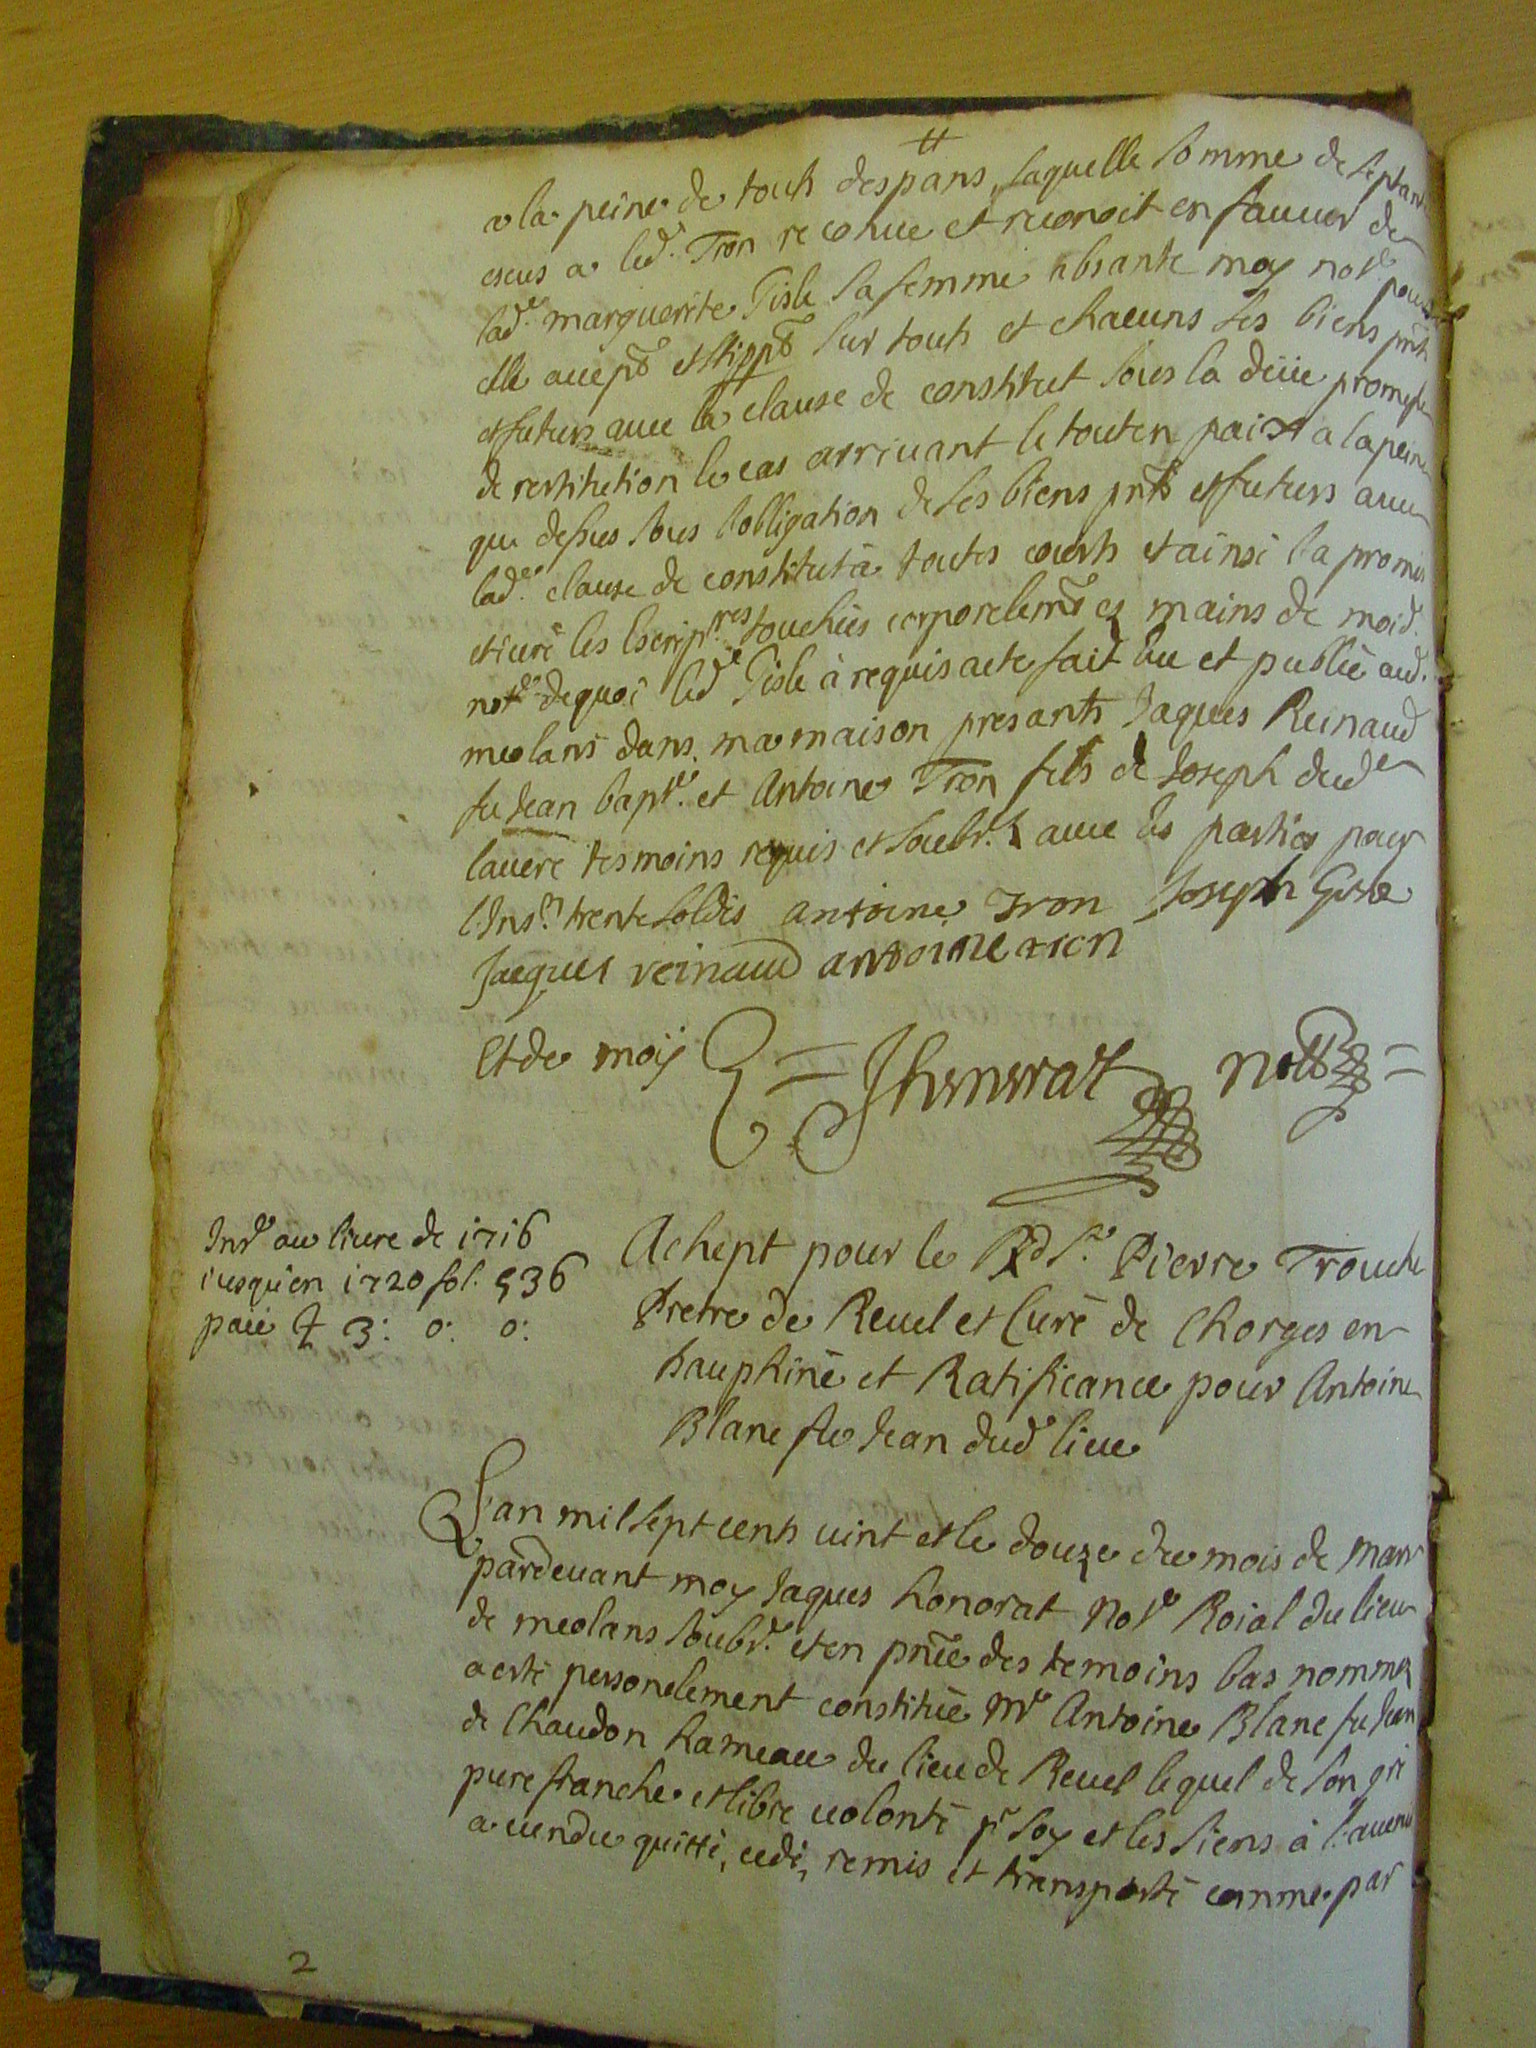 a la peine de touts despans, laquelle somme de septante
escus a led. Tron reconue et reconoit en faueur de
lad.e marguerite Gisle sa femme absante moy not.e pour
elle accept et stippt sur touts et chacuns ses biens pnts
et futurs auec la clause de constitut sous la deüe promesse
de restitution le cas arriuant le tout en paix a la peine
que dessus sous l'obligation de ses biens pnts et futurs auec
lad.e clause de constitut a toutes cours et ainsi la promis
et iuré les Escript.res touchées corporelemt ez mains de moid.
not.e dequoi led Gisle à requis acte fait leu et publié aud.
meolans dans ma maison presants Jaques Reinaud
fu Jean bapt.e et Antoine Tron fils de Joseph dud
lauere tesmoins requis et soubr.z auec les parties pour
l'Ins.n trente soldis antoine Tron Joseph Gisle
Jacques reinaud antoine tron
Et de moÿ JHonorat nott
Ins.e au liure de 1716
iusqu'en 1720 fol. 536
paié ₶ 3: 0: 0:
Achept pour le Rd Sr. Pierre Trouche
Pretre de Reuel et Curé de Chorges en
Dauphiné et Ratificance pour Antoine
Blanc fu Jean dud lieu
L'an mil sept cents uint et le douze du mois de mars
pardeuant moy Jaques honorat not.e Roial du lieu
de meolans soubr. et en pnce des temoins bas nommez
a esté personelement constitué Mr Antoine Blanc fu Jean
de Chaudon hameau du lieu de Reuel lequel de son gré
pure franche et libre uolonté pr soy et les siens à l'auenir
a uendu quitté, cedé, remis et transporté comme par
2